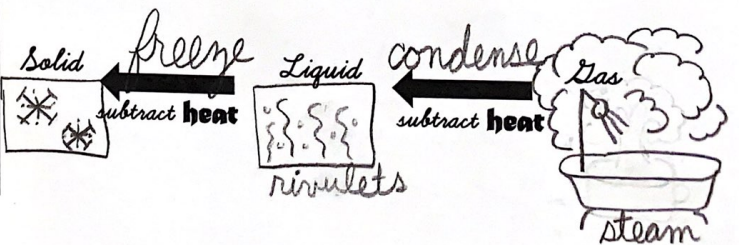 Solid
freeze
subtract heat
Liquid
rivulets
condense
subtract heat
Gas
steam